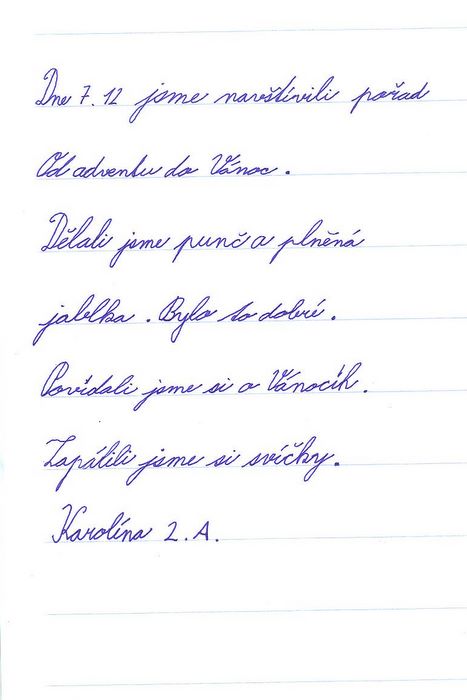 Dne 7. 12 jsme navštívili pořad
Od adventu do Vánoc.
Dělali jsme punč a plněná
jablka. Bylo to dobré.
Povídali jsme si o Vánocíh.
Zapálili jsme si svíčky.
Karolína 2. A.